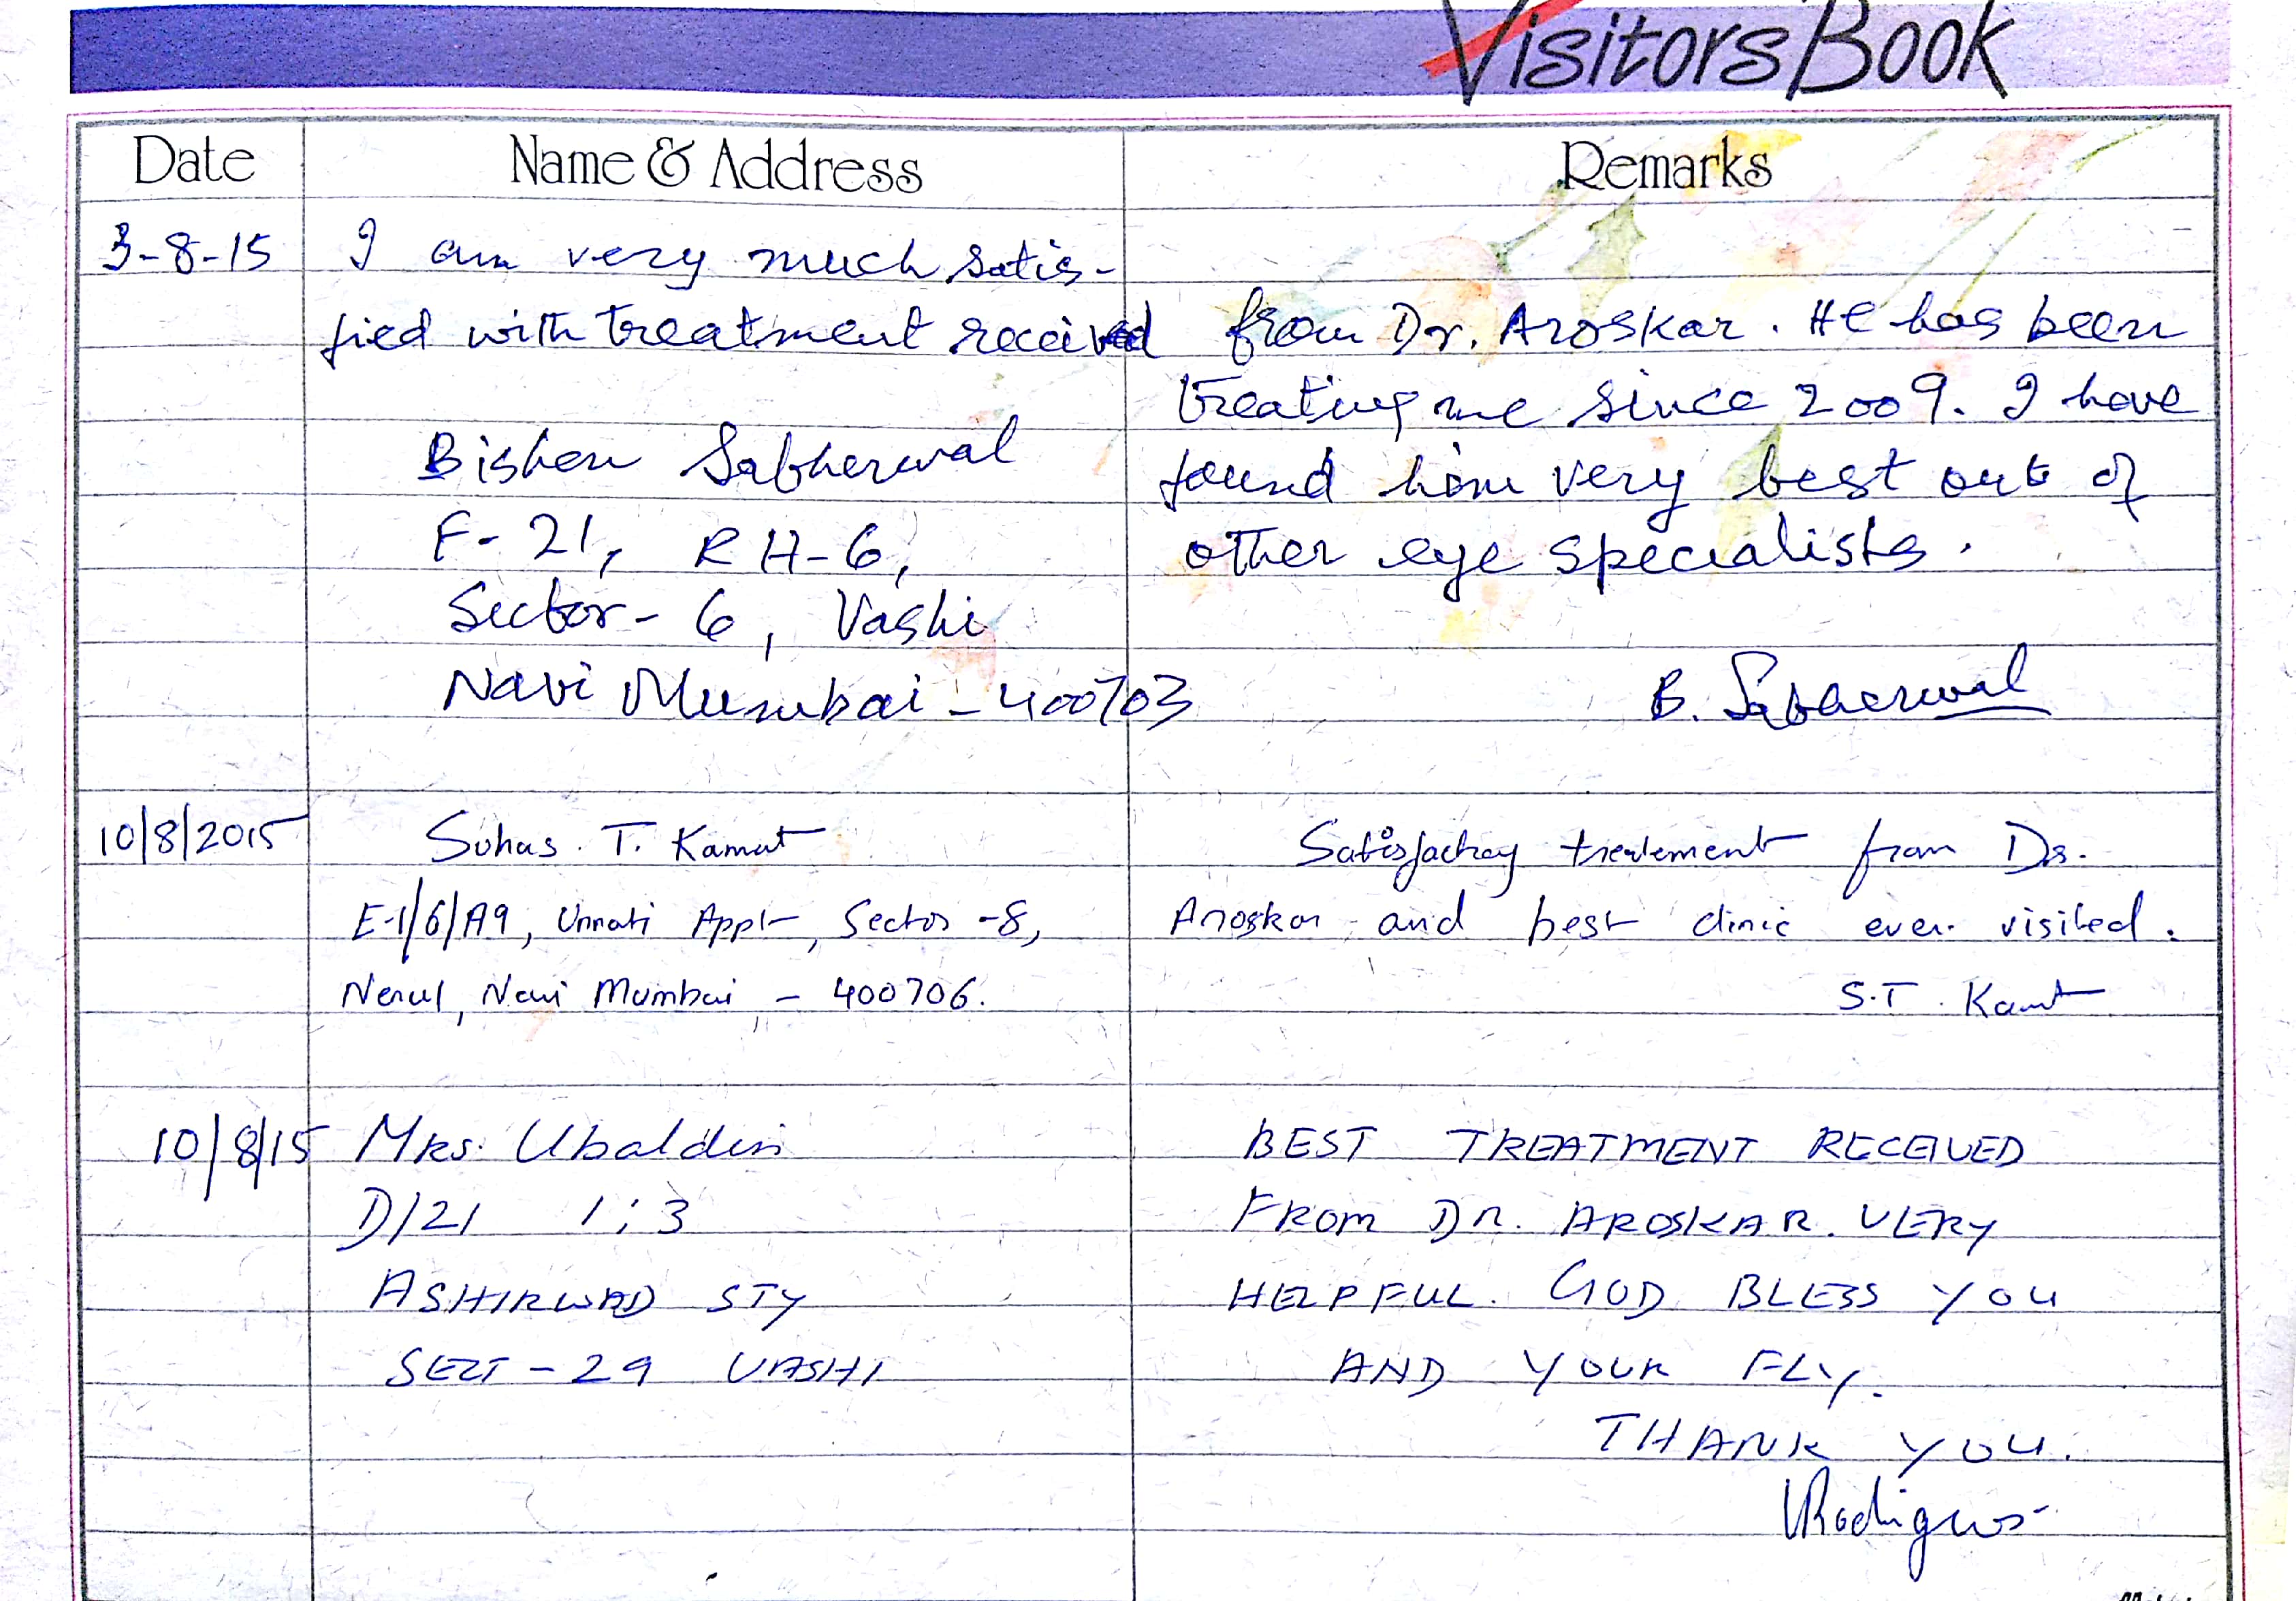 Visitors Book
Date Name & Address Remarks
3-8-15 I am very much satis-
fied with treatment received from Dr. Aroskar. He has been
treating me since 2009. I have
Bishen Sabherwal found him very best out of
F-21, RH-6, other eye specialists.
Sector-6, Vashi
Navi Mumbai-400703 B. Sabherwal
10/8/2015 Suhas. T. Kamat Satisfactory treatement from Dr.
E-1/6/A9, Unnati Appt, Sector-8, Aroskar and best clinic ever visited.
Nerul, Navi Mumbai - 400706. S.T. Kamat
10/8/15 Mrs. Ubaldin BEST TREATMENT RECEIVED
D/21 1:3 FROM DR. AROSKAR. VERY
ASHIRWAD STY HELPFUL. GOD BLESS YOU
SECT-29 VASHI AND YOUR FLY.
THANK YOU.
VRodigues